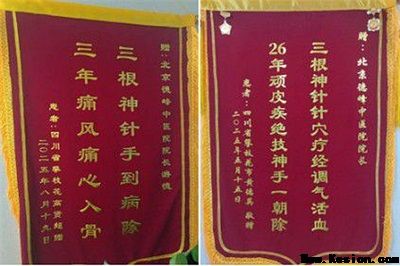 赠:北京德峰中医院院长游德
三根神针手到病除
三年痛风痛心入骨
患者:四川省攀枝花高贤超赠
二〇二五年八月十九日
赠:北京德峰中医院院长
三根神针针穴疗经调气活血
26年顽皮疾绝技神手一朝除
患者:四川省攀枝花市黄德英敬赠
二〇二五年五月十五日
Www.Kesion.com